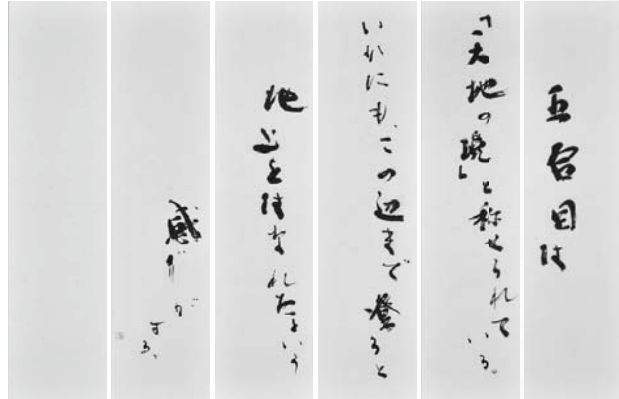 五合目は
「天地の境」と称せられている。
いかにも、この辺まで登ると
地上をはなれたという
感じがする。